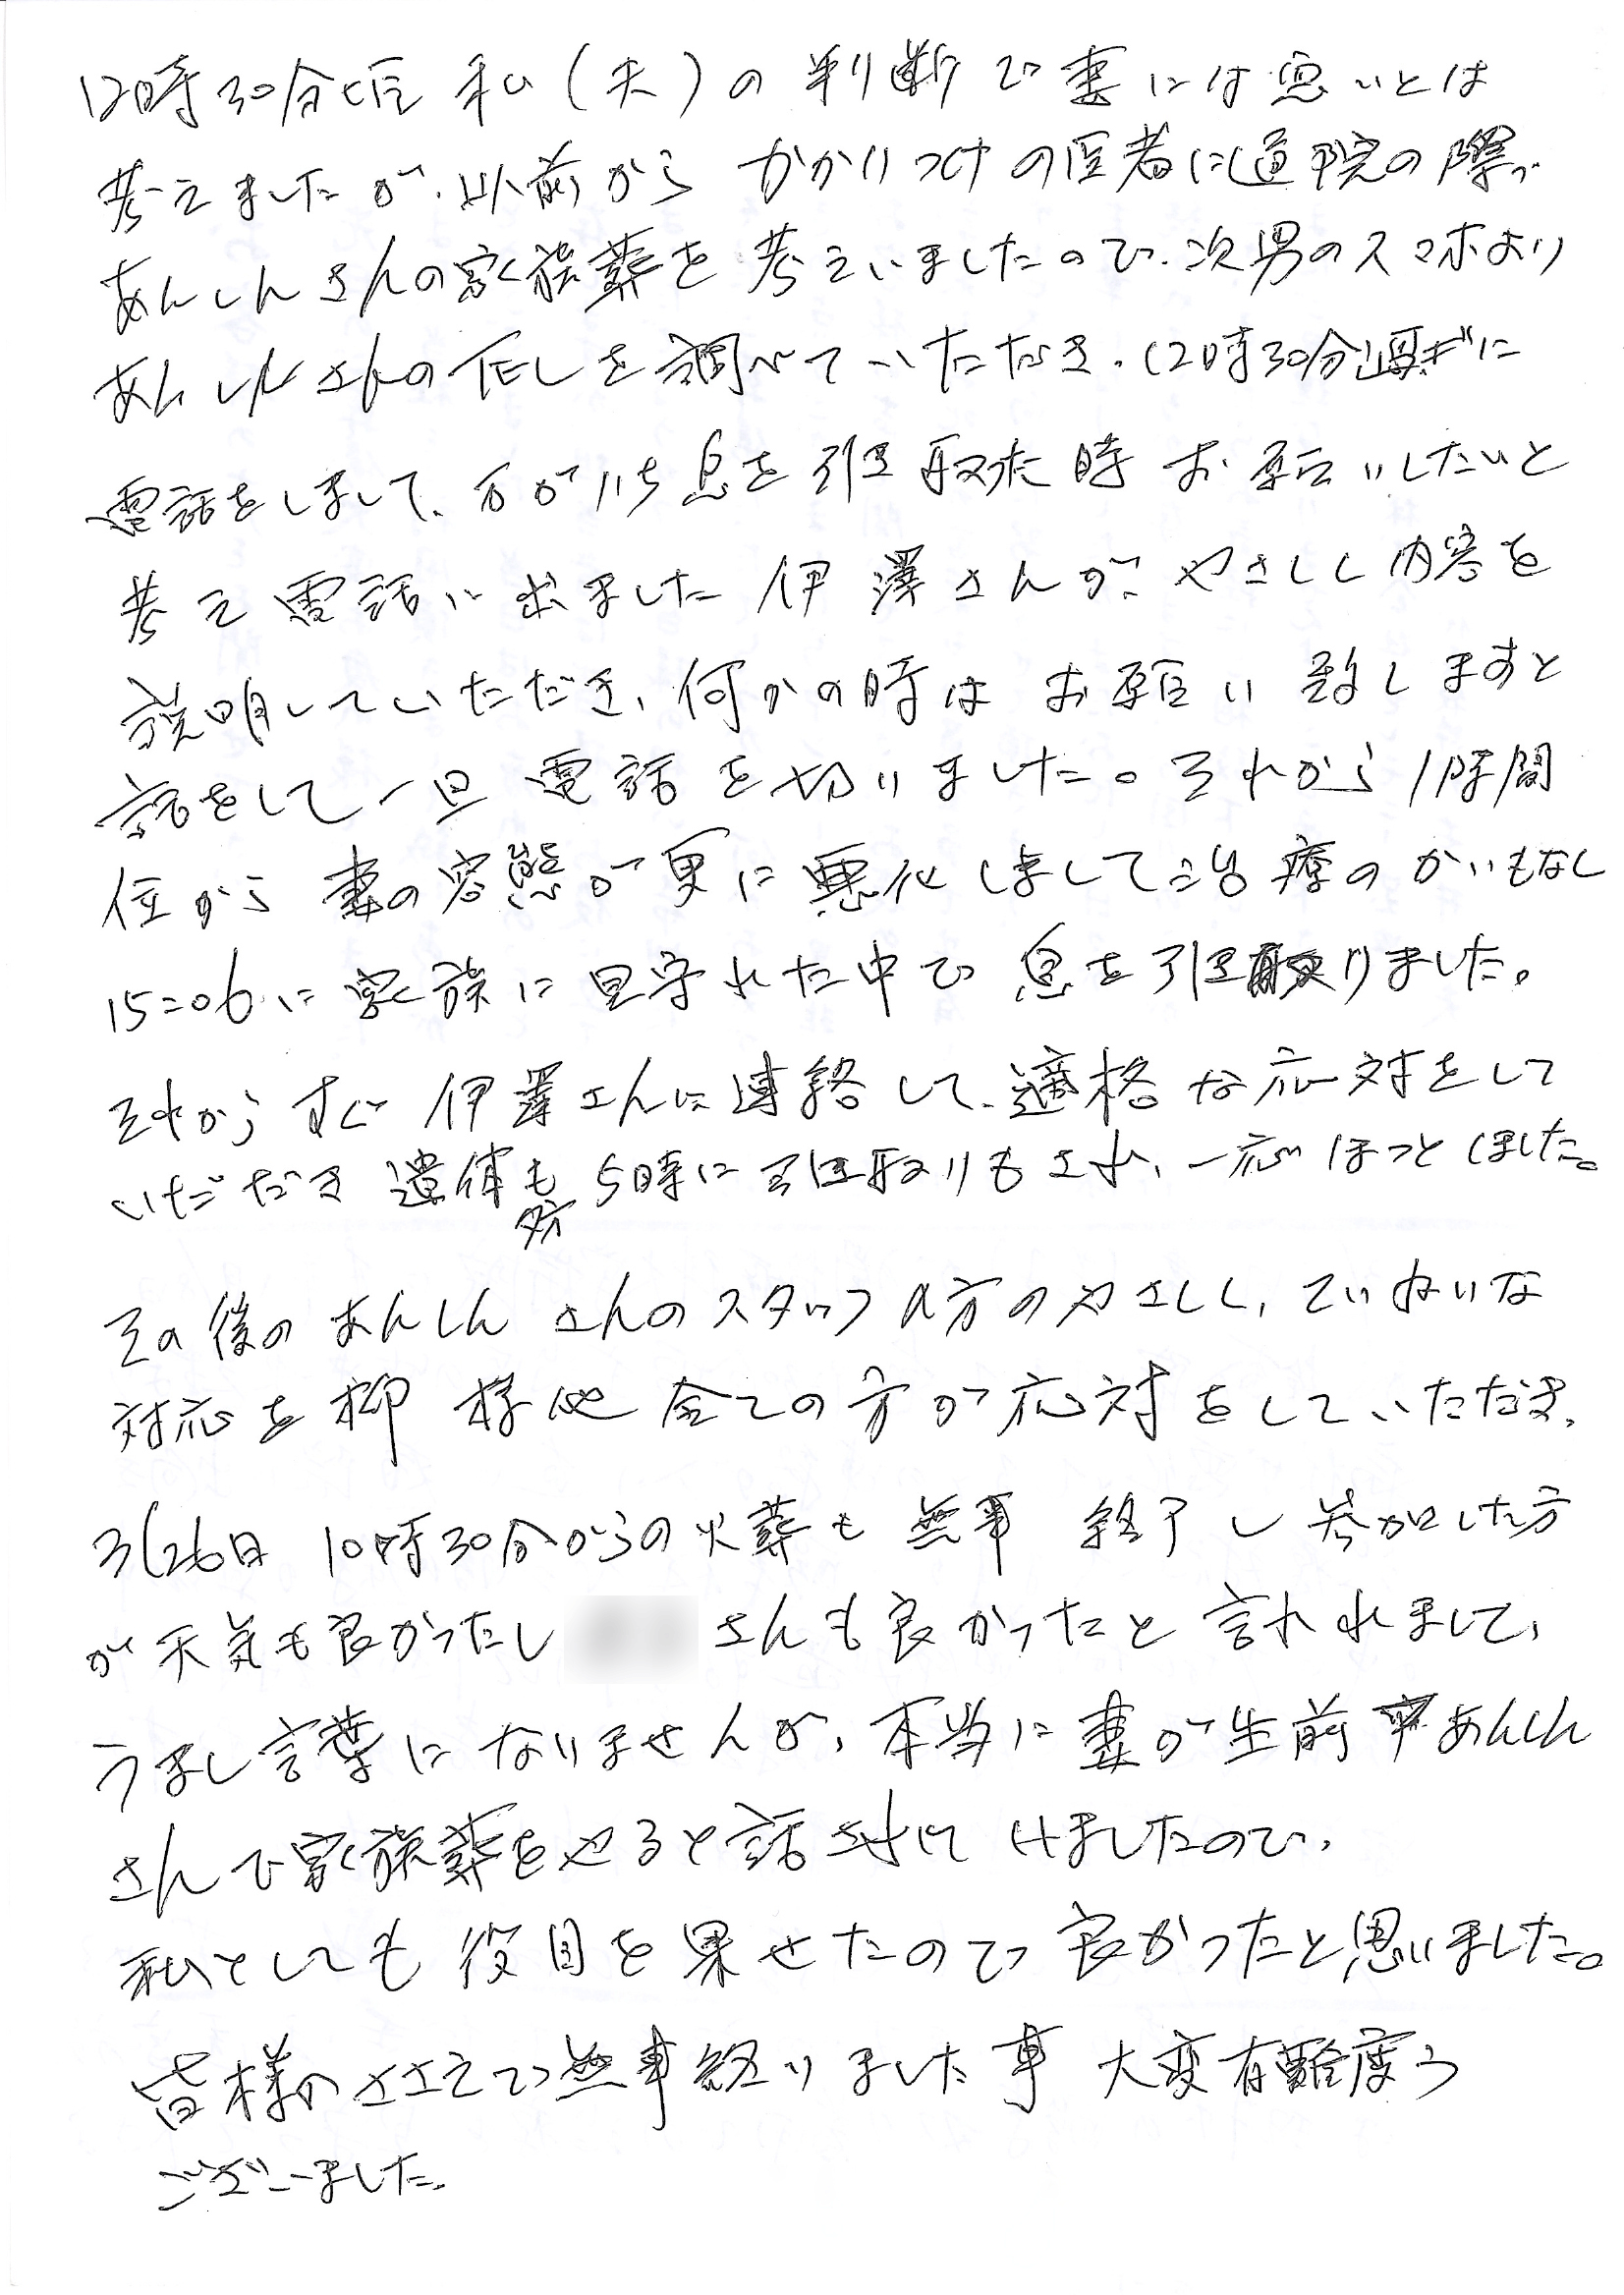 12時30分頃 私(夫)の判断で妻には悪いとは
考えましたが、以前から かかりつけの医者に通院の際、
あんしんさんの家族葬を考えいましたので、次男のスマホより
あんしんさんのTELを調べていただき、12時30分過ぎに
電話をしまして、万がいち息を引き取た時お願いしたいと
考え電話に出ました伊澤さんが、やさしく内容を
説明していただき、何かの時はお願い致しますと
話をして一旦電話を切りました。それから1時間
位から妻の容態が更に悪化しまして治療のかいもなく
15:06に家族に見守れた中で息を引き取りました。
それからすぐ伊澤さんに連絡して、適格な応対をして
いただだき遺体も夕方5時に引き取りもされ、一応ほっとしました。
その後のあんしんさんのスタッフの方のやさしく、ていねいな
対応を柳様他全ての方が応対をしていただき、
3/26日 10時30分からの火葬も無事終了し参加した方
が天気も良かったし さんも良かったと言われまして、
うまく言葉になりませんが、本当に妻が生前あんしん
さんで家族葬をやると話されていましたので、
私としても役目を果せたので良かったと思いました。
皆様のささえで無事終りました事 大変有難度う
ございました。